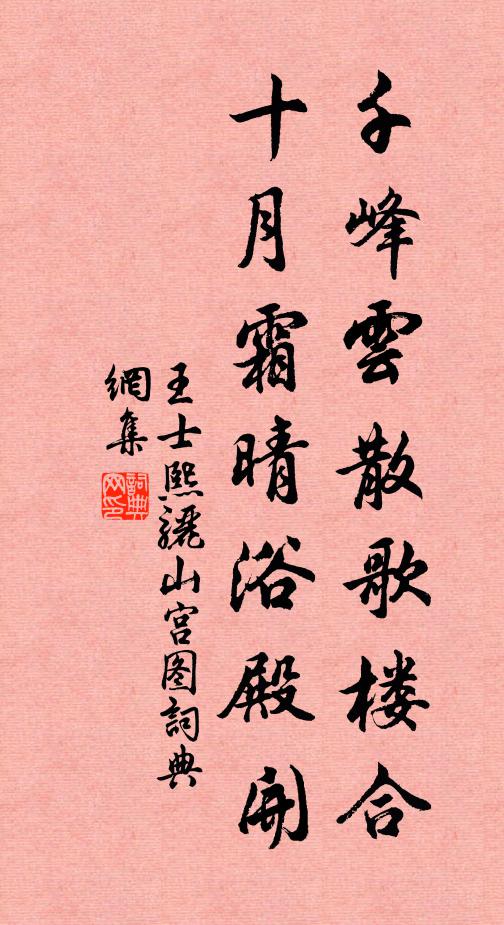 千峰雲散歌楼合
十月霜晴浴殿開
王士熙骊山宫图詞典
網集
詞典
网印